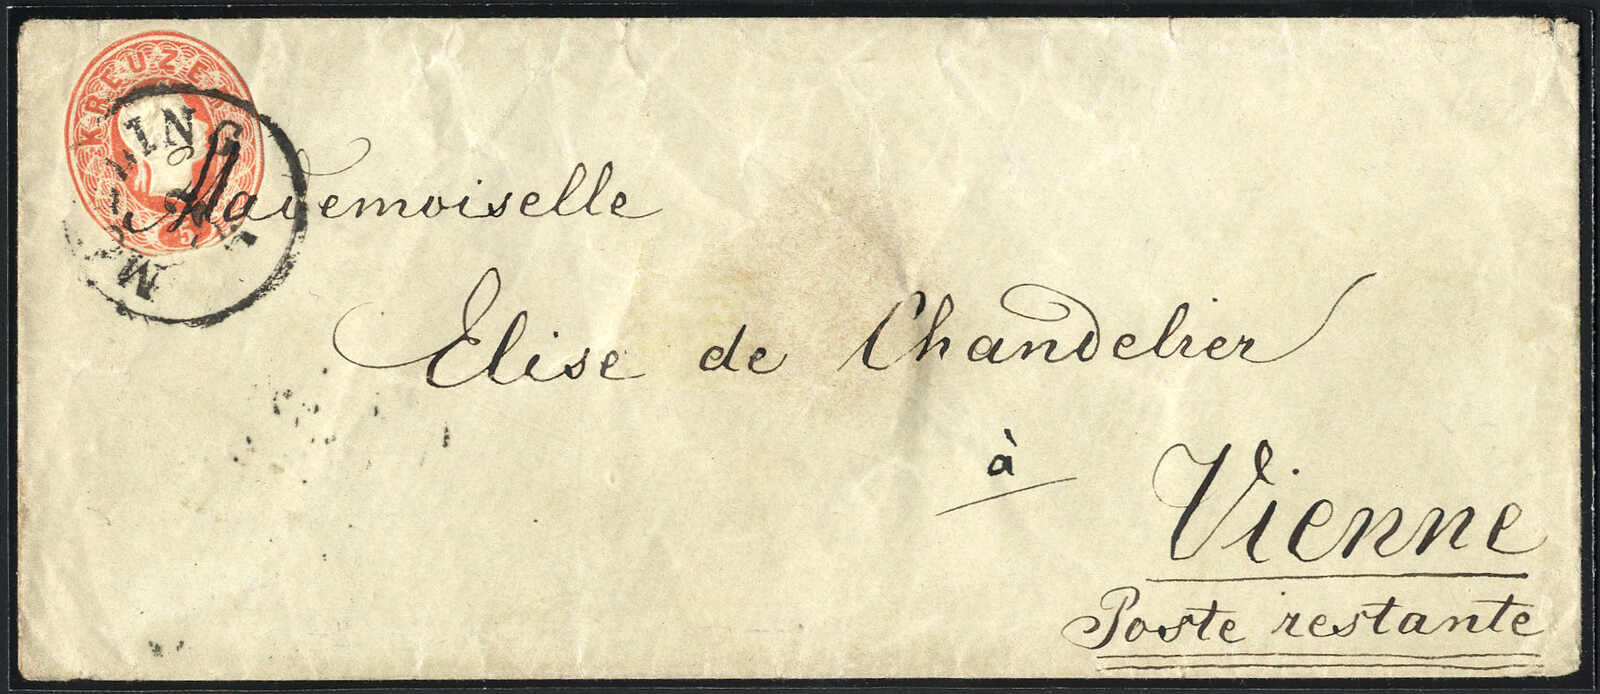 KREUZER
5
MÖDLING
Mademoiselle
Elise de Chandelier
à
Vienne
Poste restante